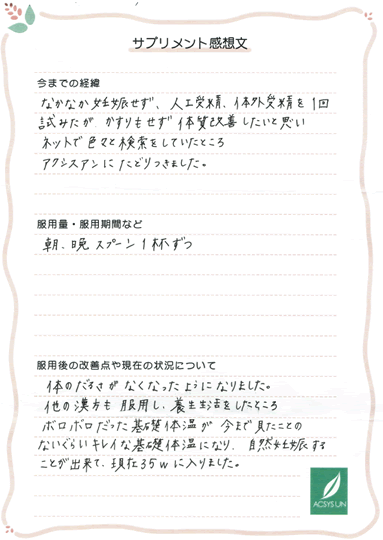 サプリメント感想文
今までの経緯
なかなか妊娠せず、人工受精、体外受精を1回
試みたが かすりもせず 体質改善したいと思い
ネットで色々と検索をしていたところ
アクシスアンにたどりつきました。
服用量・服用期間など
朝、晩 スプーン1杯ずつ
服用後の改善点や現在の状況について
体のだるさがなくなったようになりました。
他の漢方も服用し、養生生活をしたところ
ボロボロだった基礎体温が今まで見たことの
ないぐらいキレイな基礎体温になり、自然妊娠する
ことが出来て、現在35wに入りました。
ACSYS UN